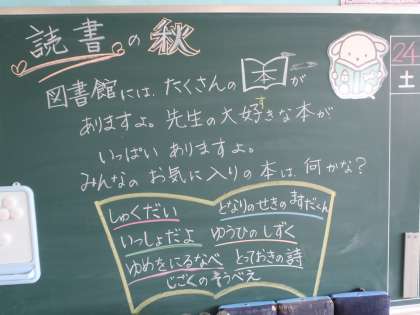 読書の秋
図書館には、たくさんの本が
ありますよ。先生の大好きな本が
いっぱいありますよ。
みんなのお気に入りの本は、何かな？
しゅくだい
となりのせきのますだくん
いっしょだよ
ゆうひのしずく
ゆめをにるなべ
とっておきの詩
じごくのそうべえ
24
土